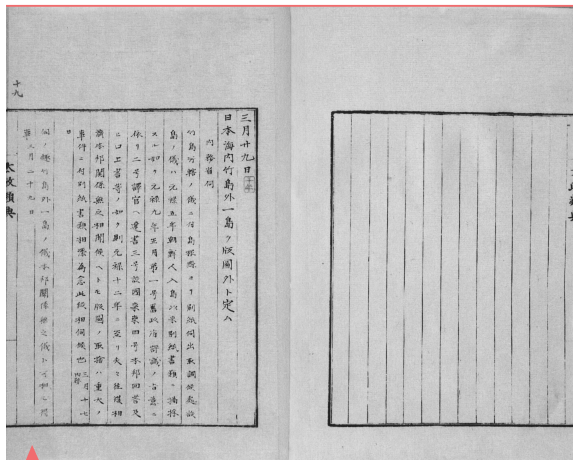 三月廿九日 十年
日本海内竹島外一島ヲ版圖外ト定ム
内務省伺
竹島所轄ノ儀ニ付島根縣ヨリ別紙伺出取調候處該
島ノ儀ハ元祿五年朝鮮人入島以來別紙書類ニ摘採
スル如ク元祿九年正月第一号舊政府評議ノ旨意ニ
依リ二号譯官ヘ達書三号該國來柬四号本邦回答及
ヒ口上書等ノ如ク則元祿十二年ニ至リ夫々往復相
濟本邦關係無之相聞候ヘトモ版圖ノ取捨ハ重大ノ
事件ニ付別紙書類相添爲念此段相伺候也 三月十七
日 内務
伺ノ趣竹島外一島ノ儀本邦關係無之儀ト可相心得
事 三月二十九日
太政類典
十九